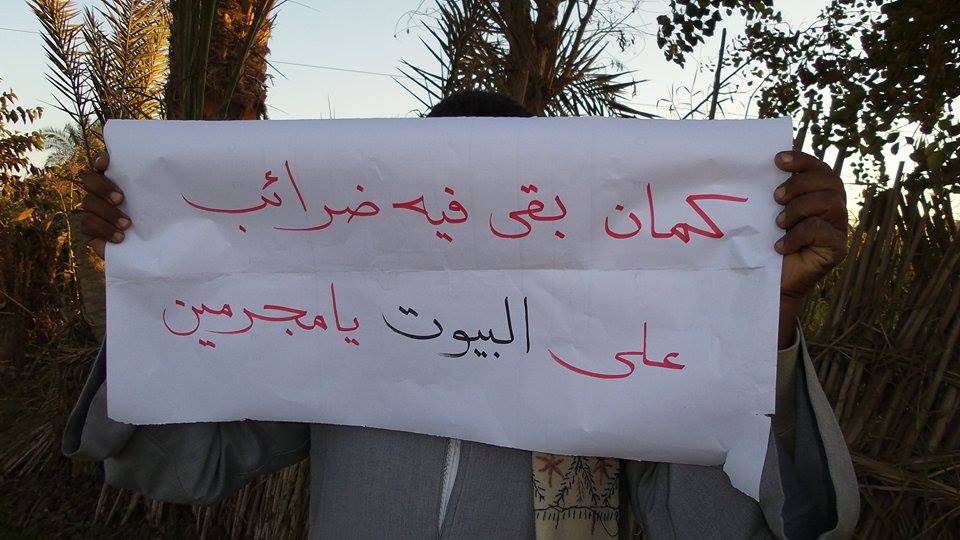 كمان بقى فيه ضرائب
على البيوت يا مجرمين